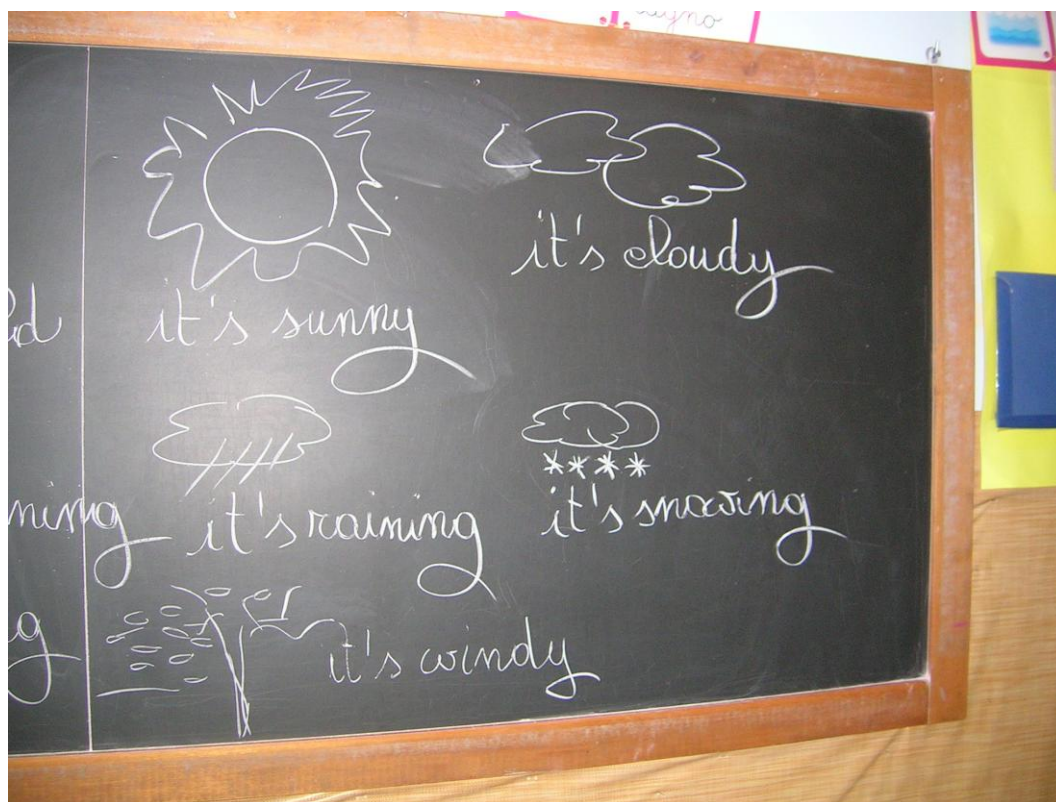 it's sunny
it's cloudy
it's raining
it's snowing
it's windy